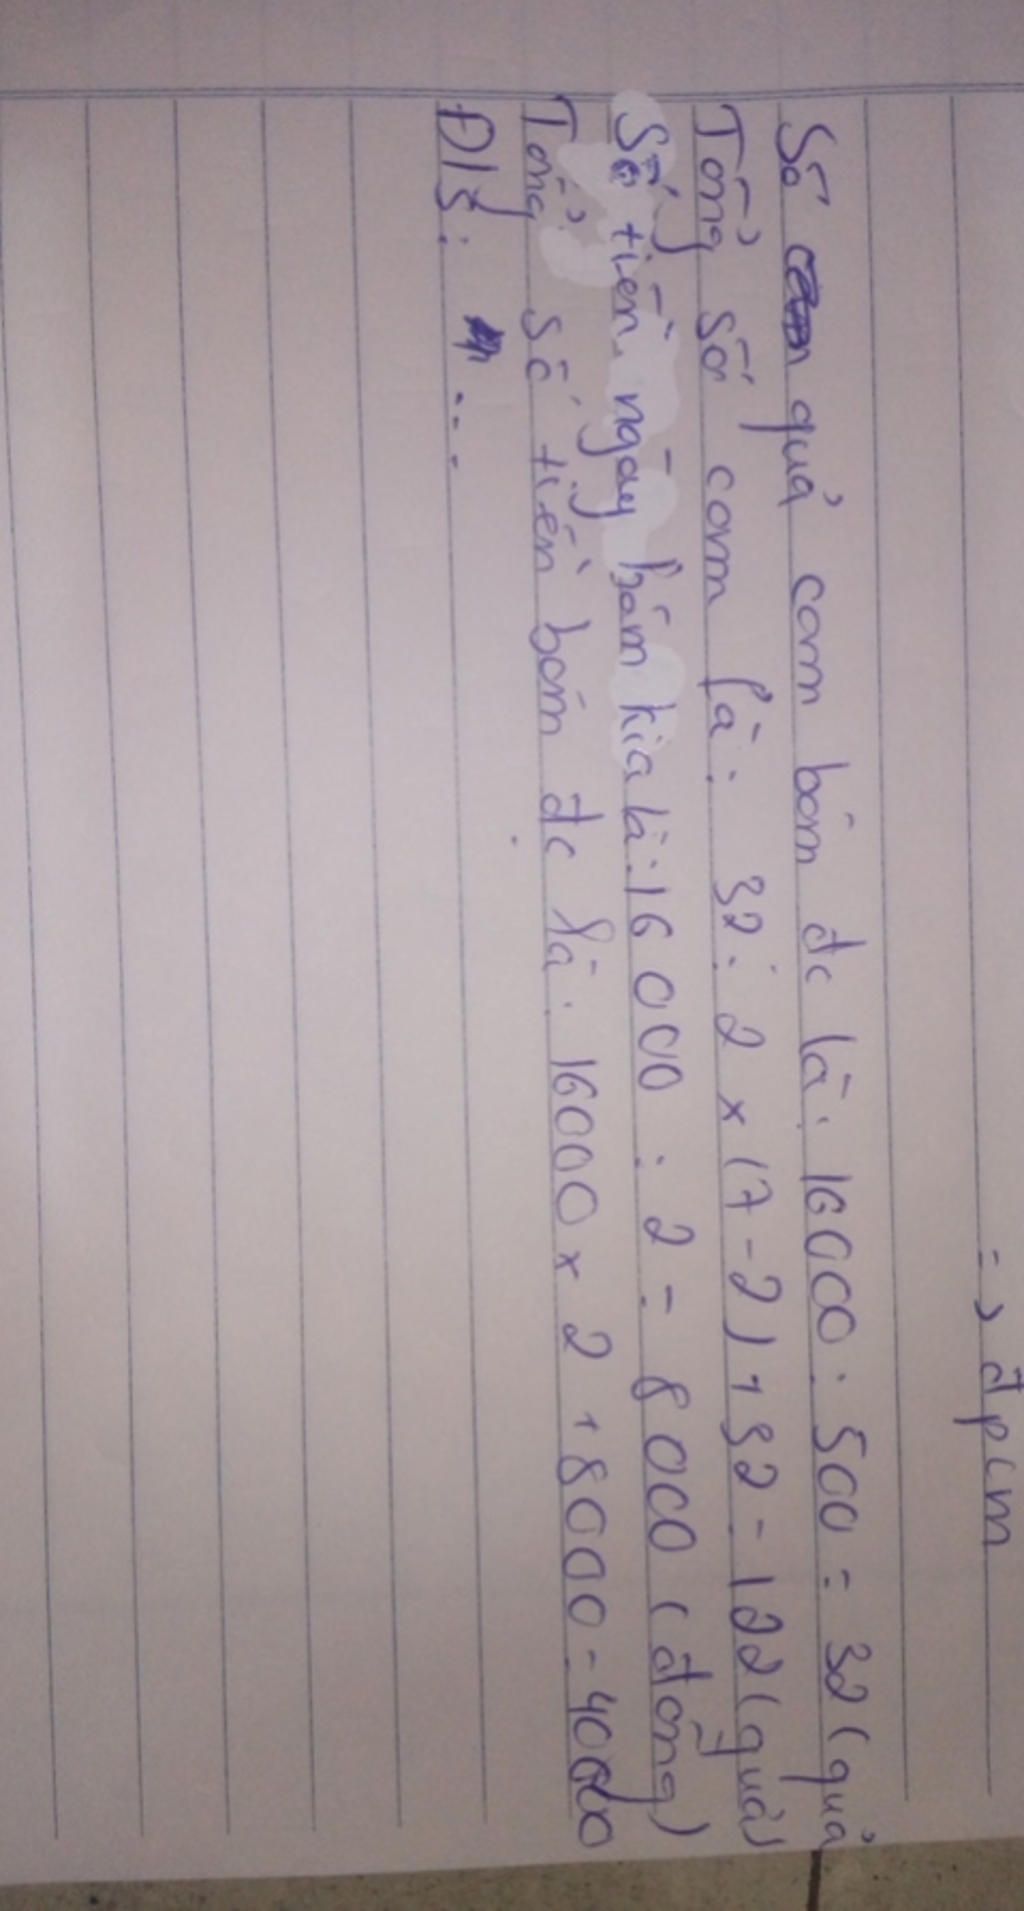 => đpcm
Số quả cam bán đc là: 16000 : 500 = 32 (quả
Tổng số cam là: 32 : 2 x (7 - 2) + 32 = 122 (quả)
Số tiền ngày bán kia là: 16 000 : 2 = 8 000 (đồng)
Tổng số tiền bán đc là: 16000 x 2 + 8000 = 40000
Đ/S: ...